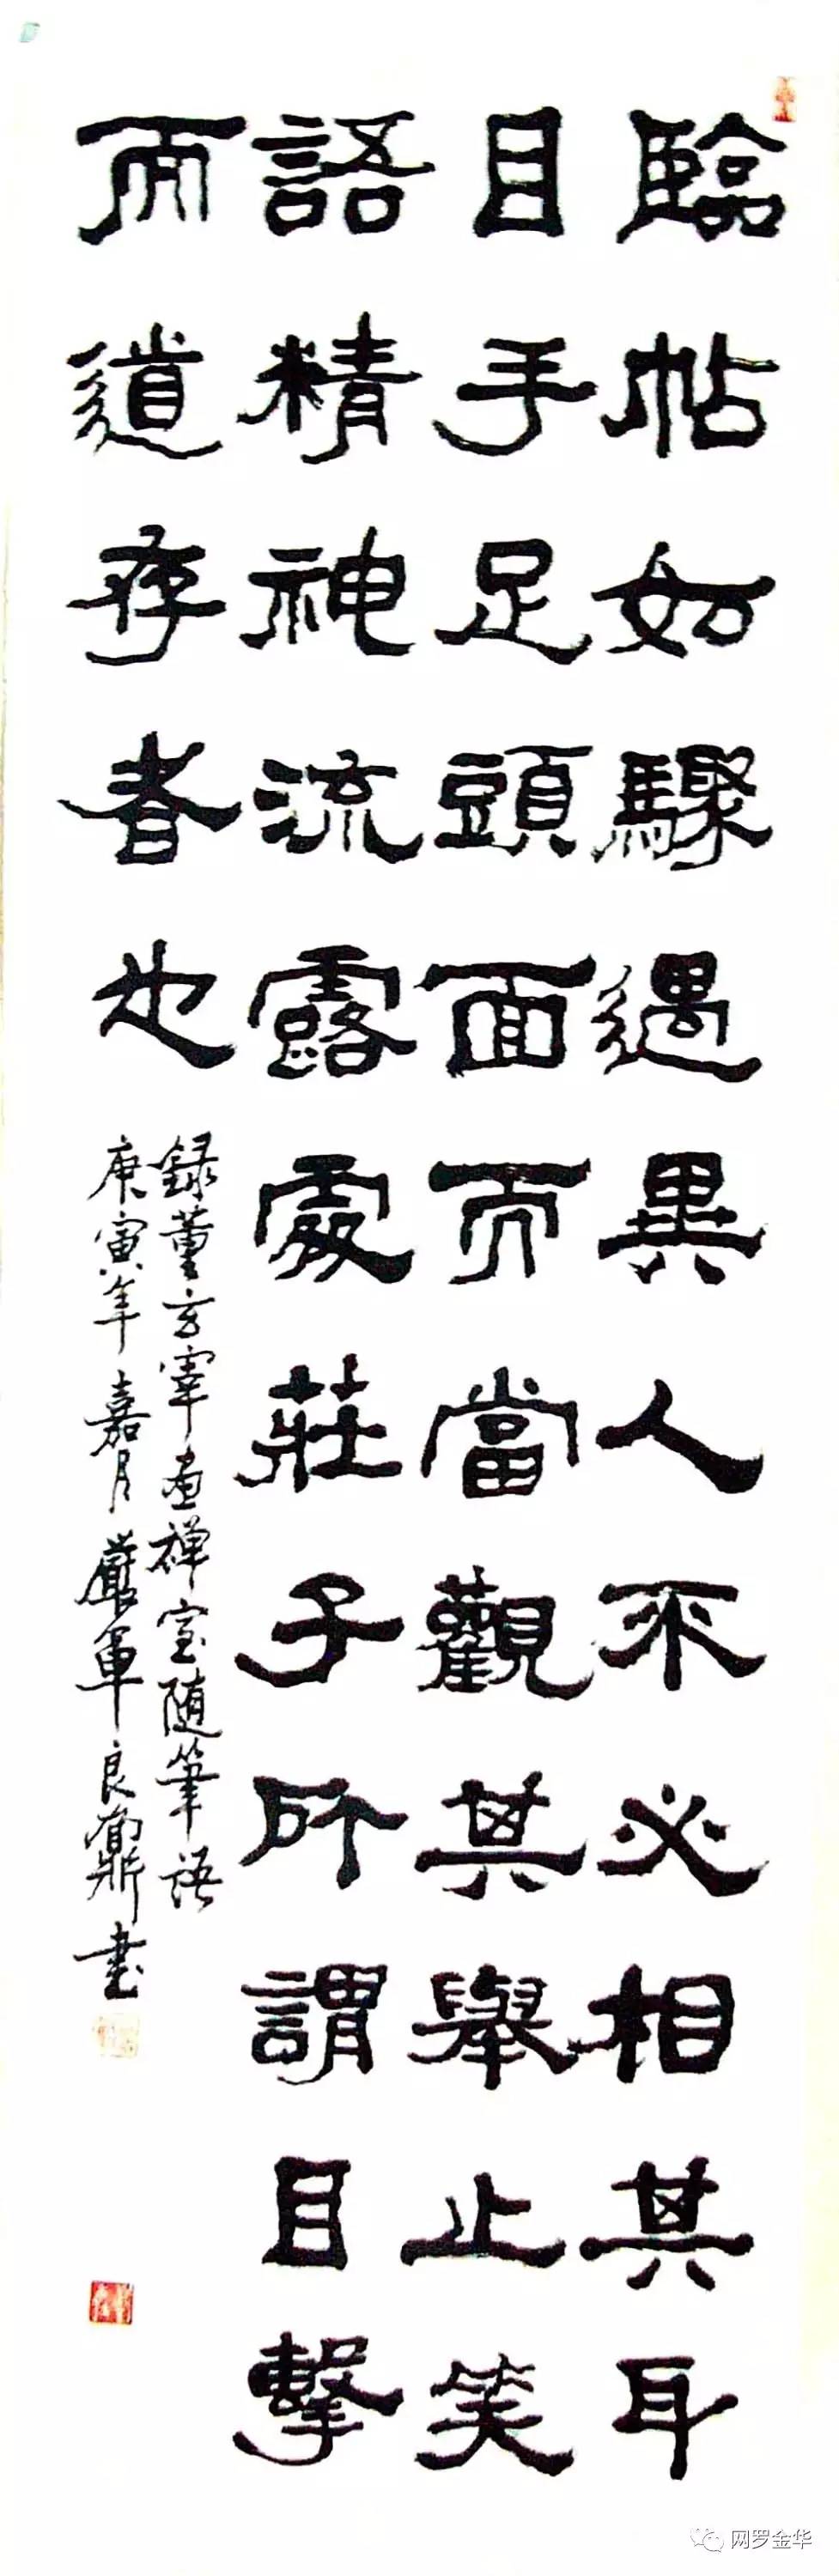 臨帖如驟遇異人不必相其耳
目手足頭面而當觀其舉止笑
語精神流露處莊子所謂目擊
而道存者也
録董玄宰畫禅室随筆語
庚寅年嘉月嚴軍良鼐書
网罗金华